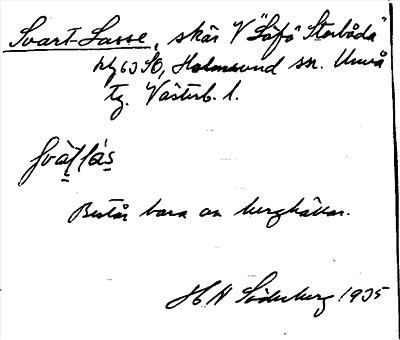 Svart-Lasse, skär V "Låfö Storbåda"
63 SO, Holmsund sn. Umeå
tg. Västerb. l.
svàt̤ làs̤
Består bara av berghällar.
H N Söderberg 1935